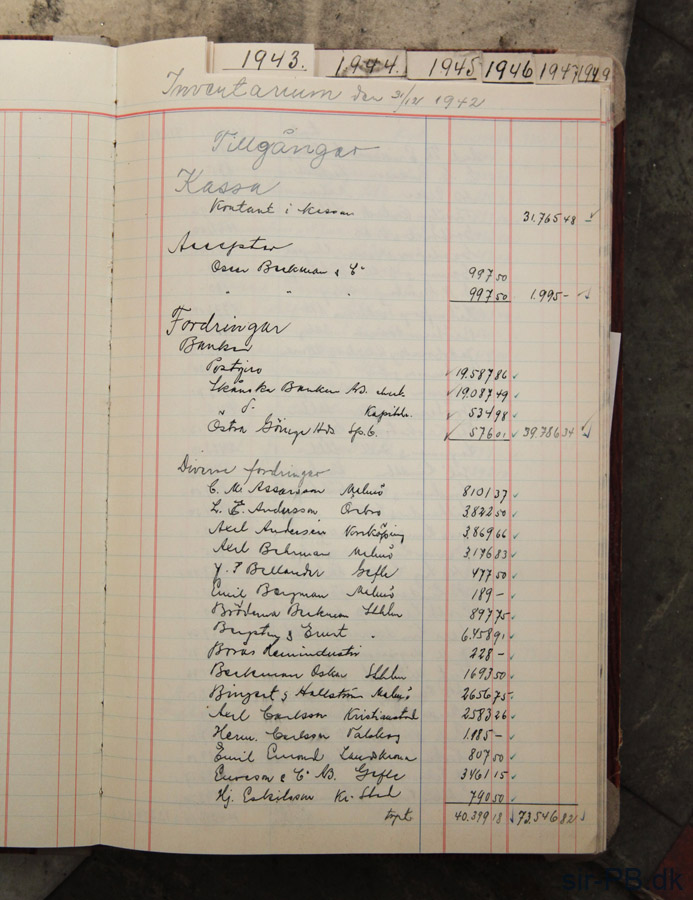 1943. 1944. 1945 1946 1947 1949
Inventarium den 31/12 1942
Tillgångar
Kassa
Kontant i kassan 31.765 48
Accepter
Oscar Beckman & C° 997 50
" " " 997 50 1.995 -
Fordringar
Banker
Postgiro 19.587 86
Skånska Banken AB. check 19.087 49
d:o Kapitalr. 534 98
Östra Göinge Hds Sp.b. 576 01 39.786 34
Diverse fordringar
C. M. Assarsson Malmö 8101 37
L. E. Andersson Örbro 3.842 50
Axel Andersén Norrköping 3.869 66
Axel Behrman Malmö 3.176 83
J. F Bellander Gefle 477 50
Emil Bergman Malmö 189 -
Bröderna Beckman Sthlm 897 75
& Ernst " 6.458 91
Borås Remindustri 228 -
Beckman Oskar Sthlm 1693 50
Bingert & Hallström Malmö 2656 75
Axel Carlsson Kristianstad 2583 26
Herm. Carlsson 1.185 -
Emil Landskrona 807 50
Ericsson & C° AB. Gefle 3461 15
Hj. Eskilsson Kr-Stad 790 50
trpt 40.399 18 73.546 82
sir-PB.dk